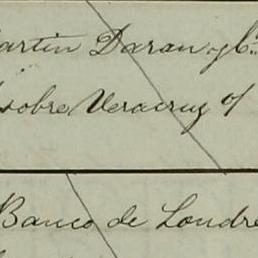 artin Daran y Ca
sobre Veracruz o/
Banco de Londre